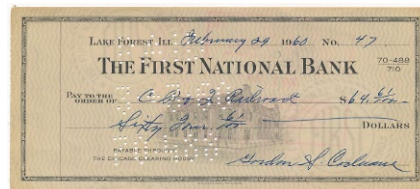 LAKE FOREST ILL. February 29 1960 No. 47
THE FIRST NATIONAL BANK 70-488
710
PAY TO THE
ORDER OF C B & Q Railroad $64.
Sixty Four DOLLARS
PAYABLE THROUGH
THE CHICAGO CLEARING HOUSE
Gordon S. Cochrane